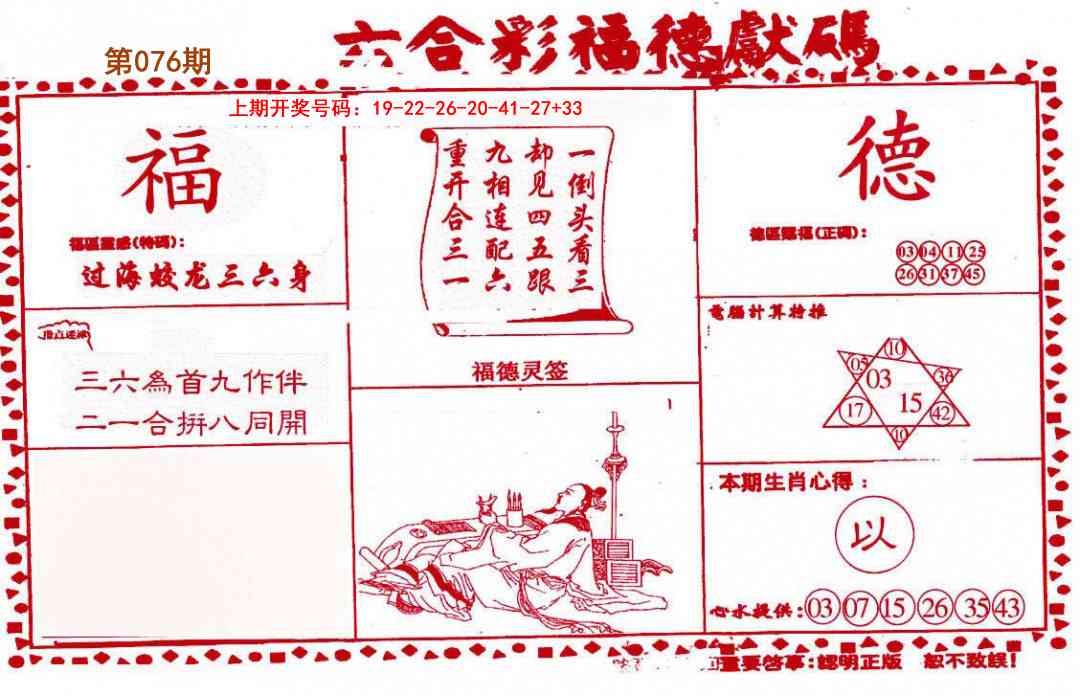 六合彩福德獻碼
第076期
上期开奖号码：19-22-26-20-41-27+33
福
福區靈感(特碼)：
过海蛟龙三六身
三六為首九作伴
二一合拼八同開
一倒头看三
却见四五跟
九相连配六
重开合三一
福德灵签
德
德區賜福(正碼)：
03 04 11 25
26 31 37 45
電腦計算特推
10
05 03 36
17 15 42
10
本期生肖心得：
以
心水提供：03 07 15 26 35 43
重要啓事：認明正版 恕不致誤！